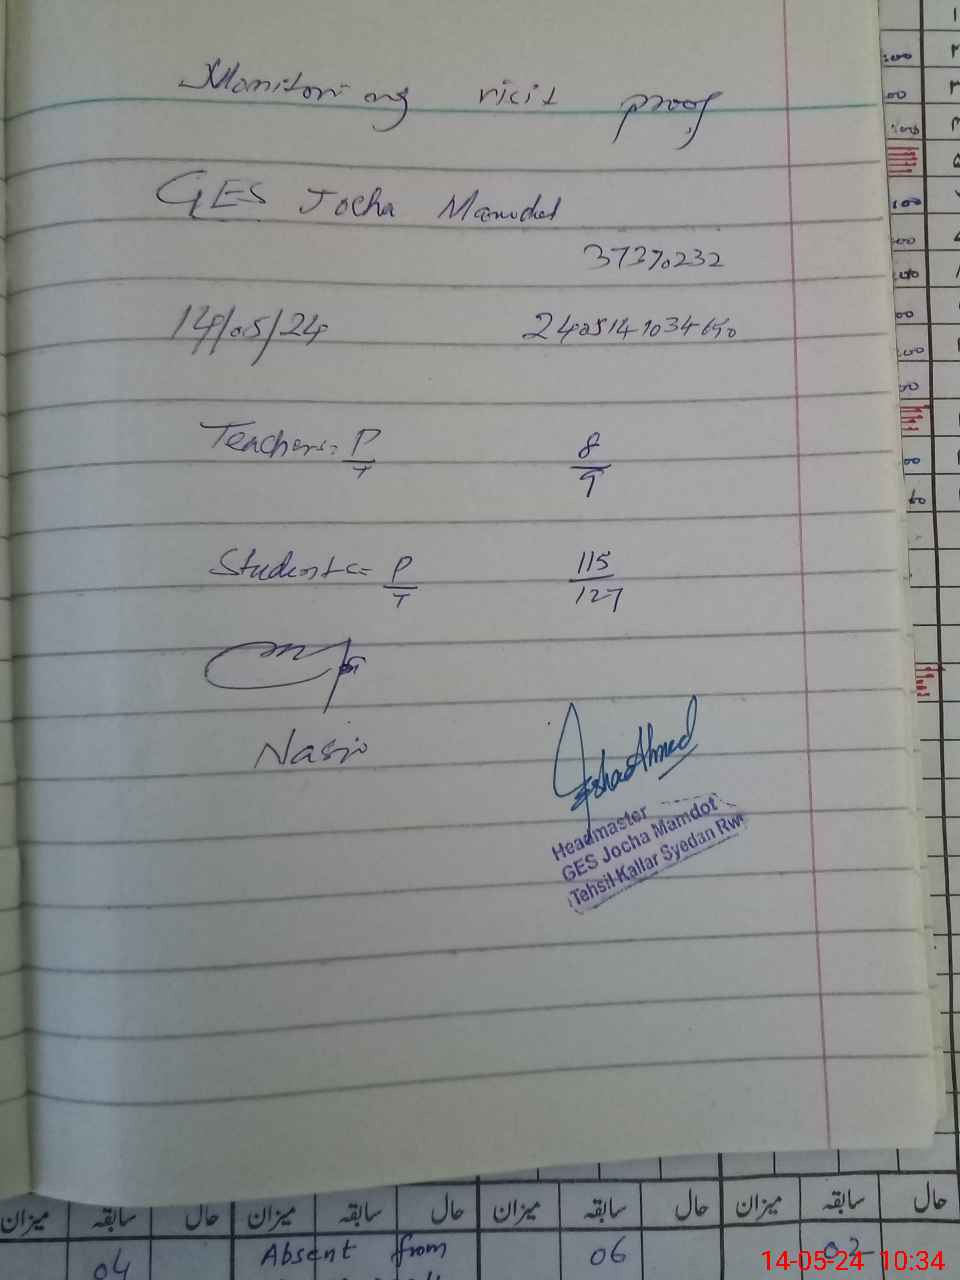 Monitoring visit proof
GES Jocha Mamdot
37370232
14/05/24 2405141034650
Teachers= P/T 8/9
Students= P/T 115/127
Nasir
Headmaster
GES Jocha Mamdot
Tehsil Kallar Syedan Rwp
میزان سابقہ حال میزان سابقہ حال میزان سابقہ حال میزان سابقہ حال
04 Absent from 06 02
14-05-24 10:34